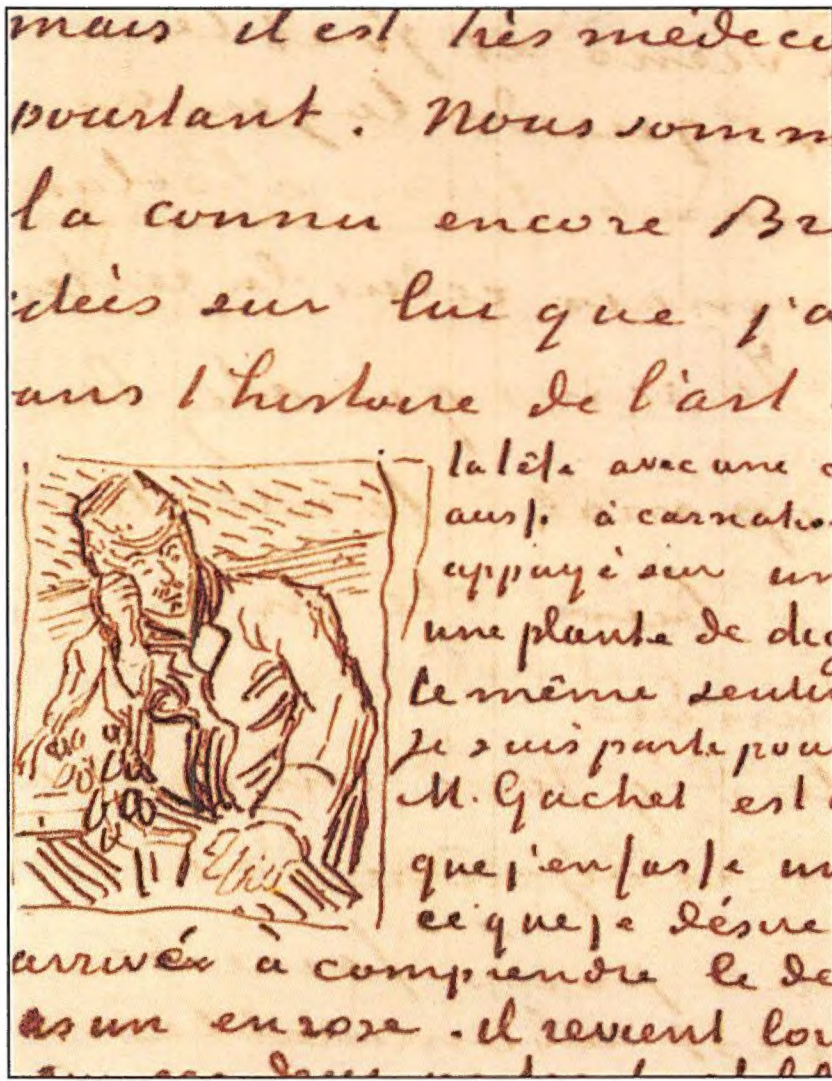 mais il est très médeci
pourtant. Nous somm
l'a connu encore Br
idées sur lui que j'a
ans l'histoire de l'art
la tête avec une c
aussi à carnatio
appuyé sur un
une plante de dig
le même senti
Je suis parti pour
M. Gachet est
que j'en fasse un
ce que je désire
arrivé à comprendre le de
as un en rose. il revient lor